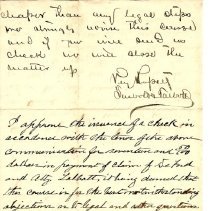 cheaper than any legal steps
nor almighty advise this course
and if you will send us
check we will close the
matter up
Very Respect
I approve the issuance of a check in
accordance with the tenor of the above
communication for seventeen and
dollars in payment of claim of
and Atty Talbott it being deemed that
this course is for the best notwithstanding
objections as to legal and other questions